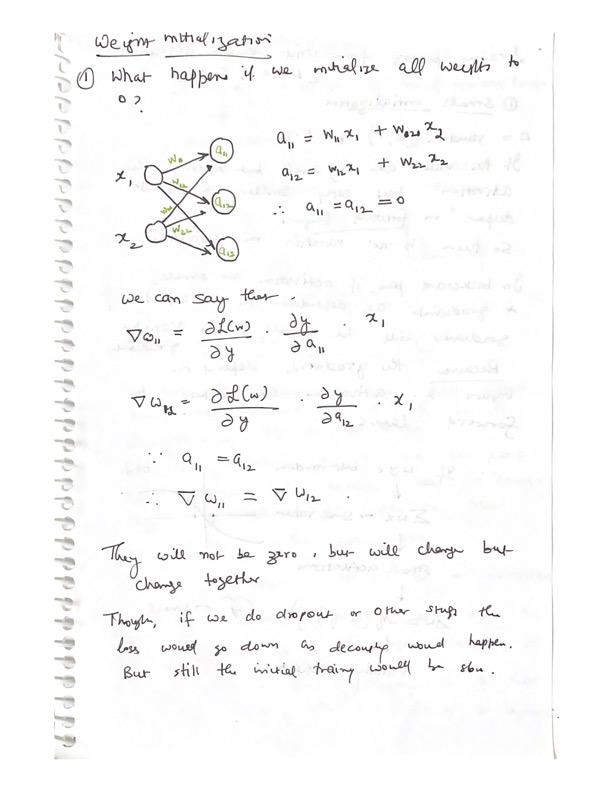 Weight initialization
① What happens if we initialize all weights to
0?
x₁ w₁₁ a₁₁
w₁₂
a₁₂
x₂ w₂₂
a₁₃
a₁₁ = w₁₁x₁ + w₂₁x₂
a₁₂ = w₁₂x₁ + w₂₂x₂
∴ a₁₁ = a₁₂ = 0
We can say that.
∇ω₁₁ = ∂ℒ(w)/∂y · ∂y/∂a₁₁ · x₁
∇ω₁₂ = ∂ℒ(w)/∂y · ∂y/∂a₁₂ · x₁
∵ a₁₁ = a₁₂
∴ ∇ω₁₁ = ∇ω₁₂ .
They will not be zero, but will change but
change together
Though, if we do dropout or other stuff the
loss would go down as decoupling would happen.
But still the initial training would be slow.